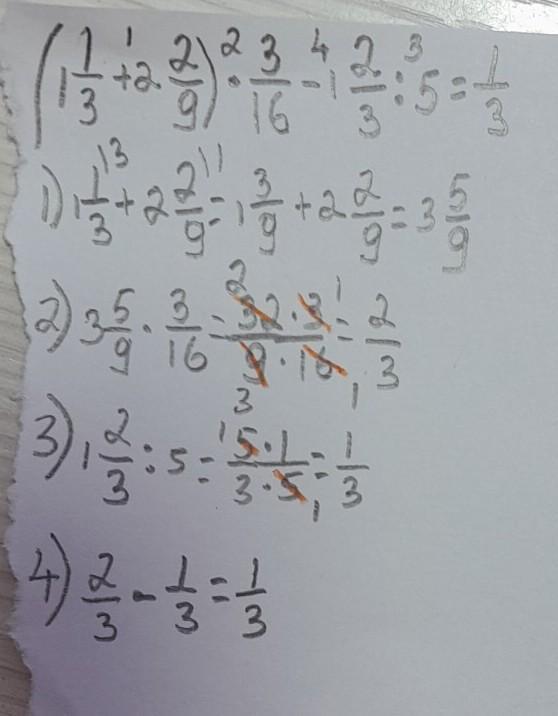 (1 1/3 +¹ 2 2/9) ·² 3/16 -⁴ 1 2/3 :³ 5 = 1/3
1) 1 1/3 ¹³ + 2 2/9 ¹¹ = 1 3/9 + 2 2/9 = 3 5/9
2) 3 5/9 · 3/16 = ²32 · 3¹ / ₃9 · 16₁ = 2/3
3) 1 2/3 : 5 = ¹5 · 1 / 3 · 5₁ = 1/3
4) 2/3 - 1/3 = 1/3